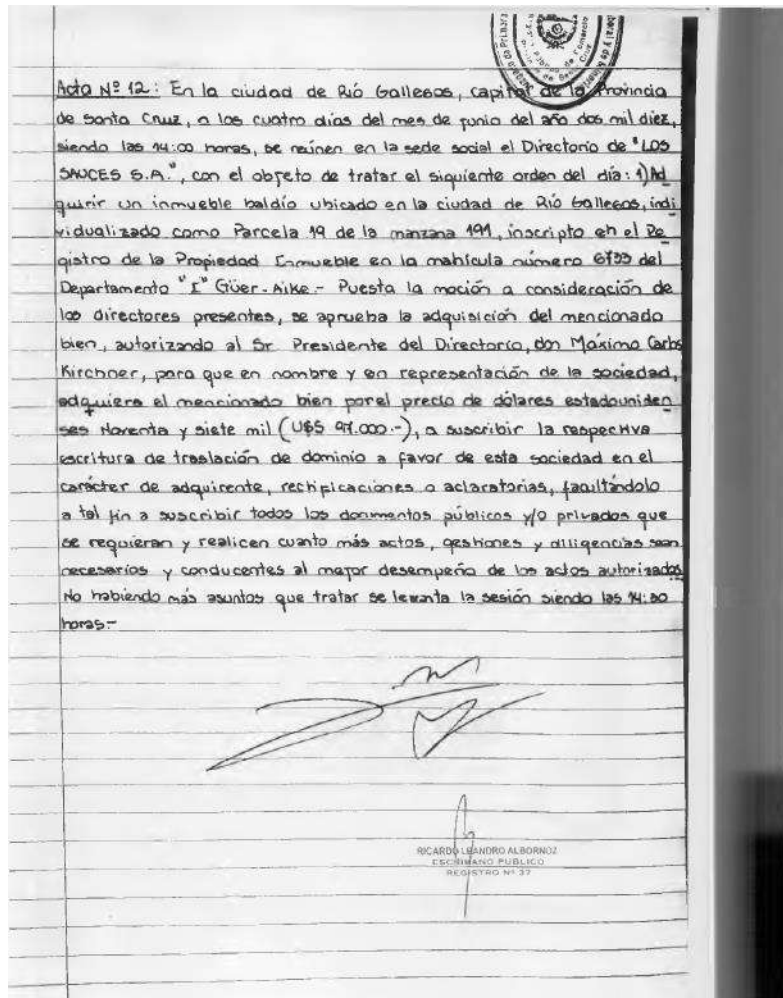 Público de Comercio
Acta Nº 12: En la ciudad de Rió Gallegos, capital de la Provincia
de Santa Cruz, a los cuatro días del mes de junio del año dos mil diez,
siendo las 14:00 horas, se reúnen en la sede social el Directorio de "LOS
SAUCES S.A.", con el objeto de tratar el siguiente orden del día: 1) Ad
quirir un inmueble baldío ubicado en la ciudad de Rió Gallegos, indi
vidualizado como Parcela 19 de la manzana 191, inscripto en el Re
gistro de la Propiedad Inmueble en la matrícula número 6733 del
Departamento "I" Güer-Aike.- Puesta la moción a consideración de
los directores presentes, se aprueba la adquisición del mencionado
bien, autorizando al Sr. Presidente del Directorio, don Máximo Carlos
Kirchner, para que en nombre y en representación de la sociedad,
adquiera el mencionado bien por el precio de dólares estadouniden
ses Noventa y siete mil (U$S 97.000.-), a suscribir la respectiva
escritura de traslación de dominio a favor de esta sociedad en el
carácter de adquirente, rectificaciones o aclaratorias, facultándolo
a tal fin a suscribir todos los documentos públicos y/o privados que
se requieran y realicen cuanto más actos, gestiones y diligencias sean
necesarios y conducentes al mejor desempeño de los actos autorizados
No habiendo más asuntos que tratar se levanta la sesión siendo las 14:30
horas.-
RICARDO LEANDRO ALBORNOZ
ESCRIBANO PUBLICO
REGISTRO Nº 37